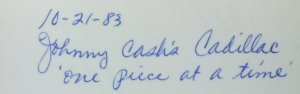 10-21-83
Johnny Cash's Cadillac
'one piece at a time'